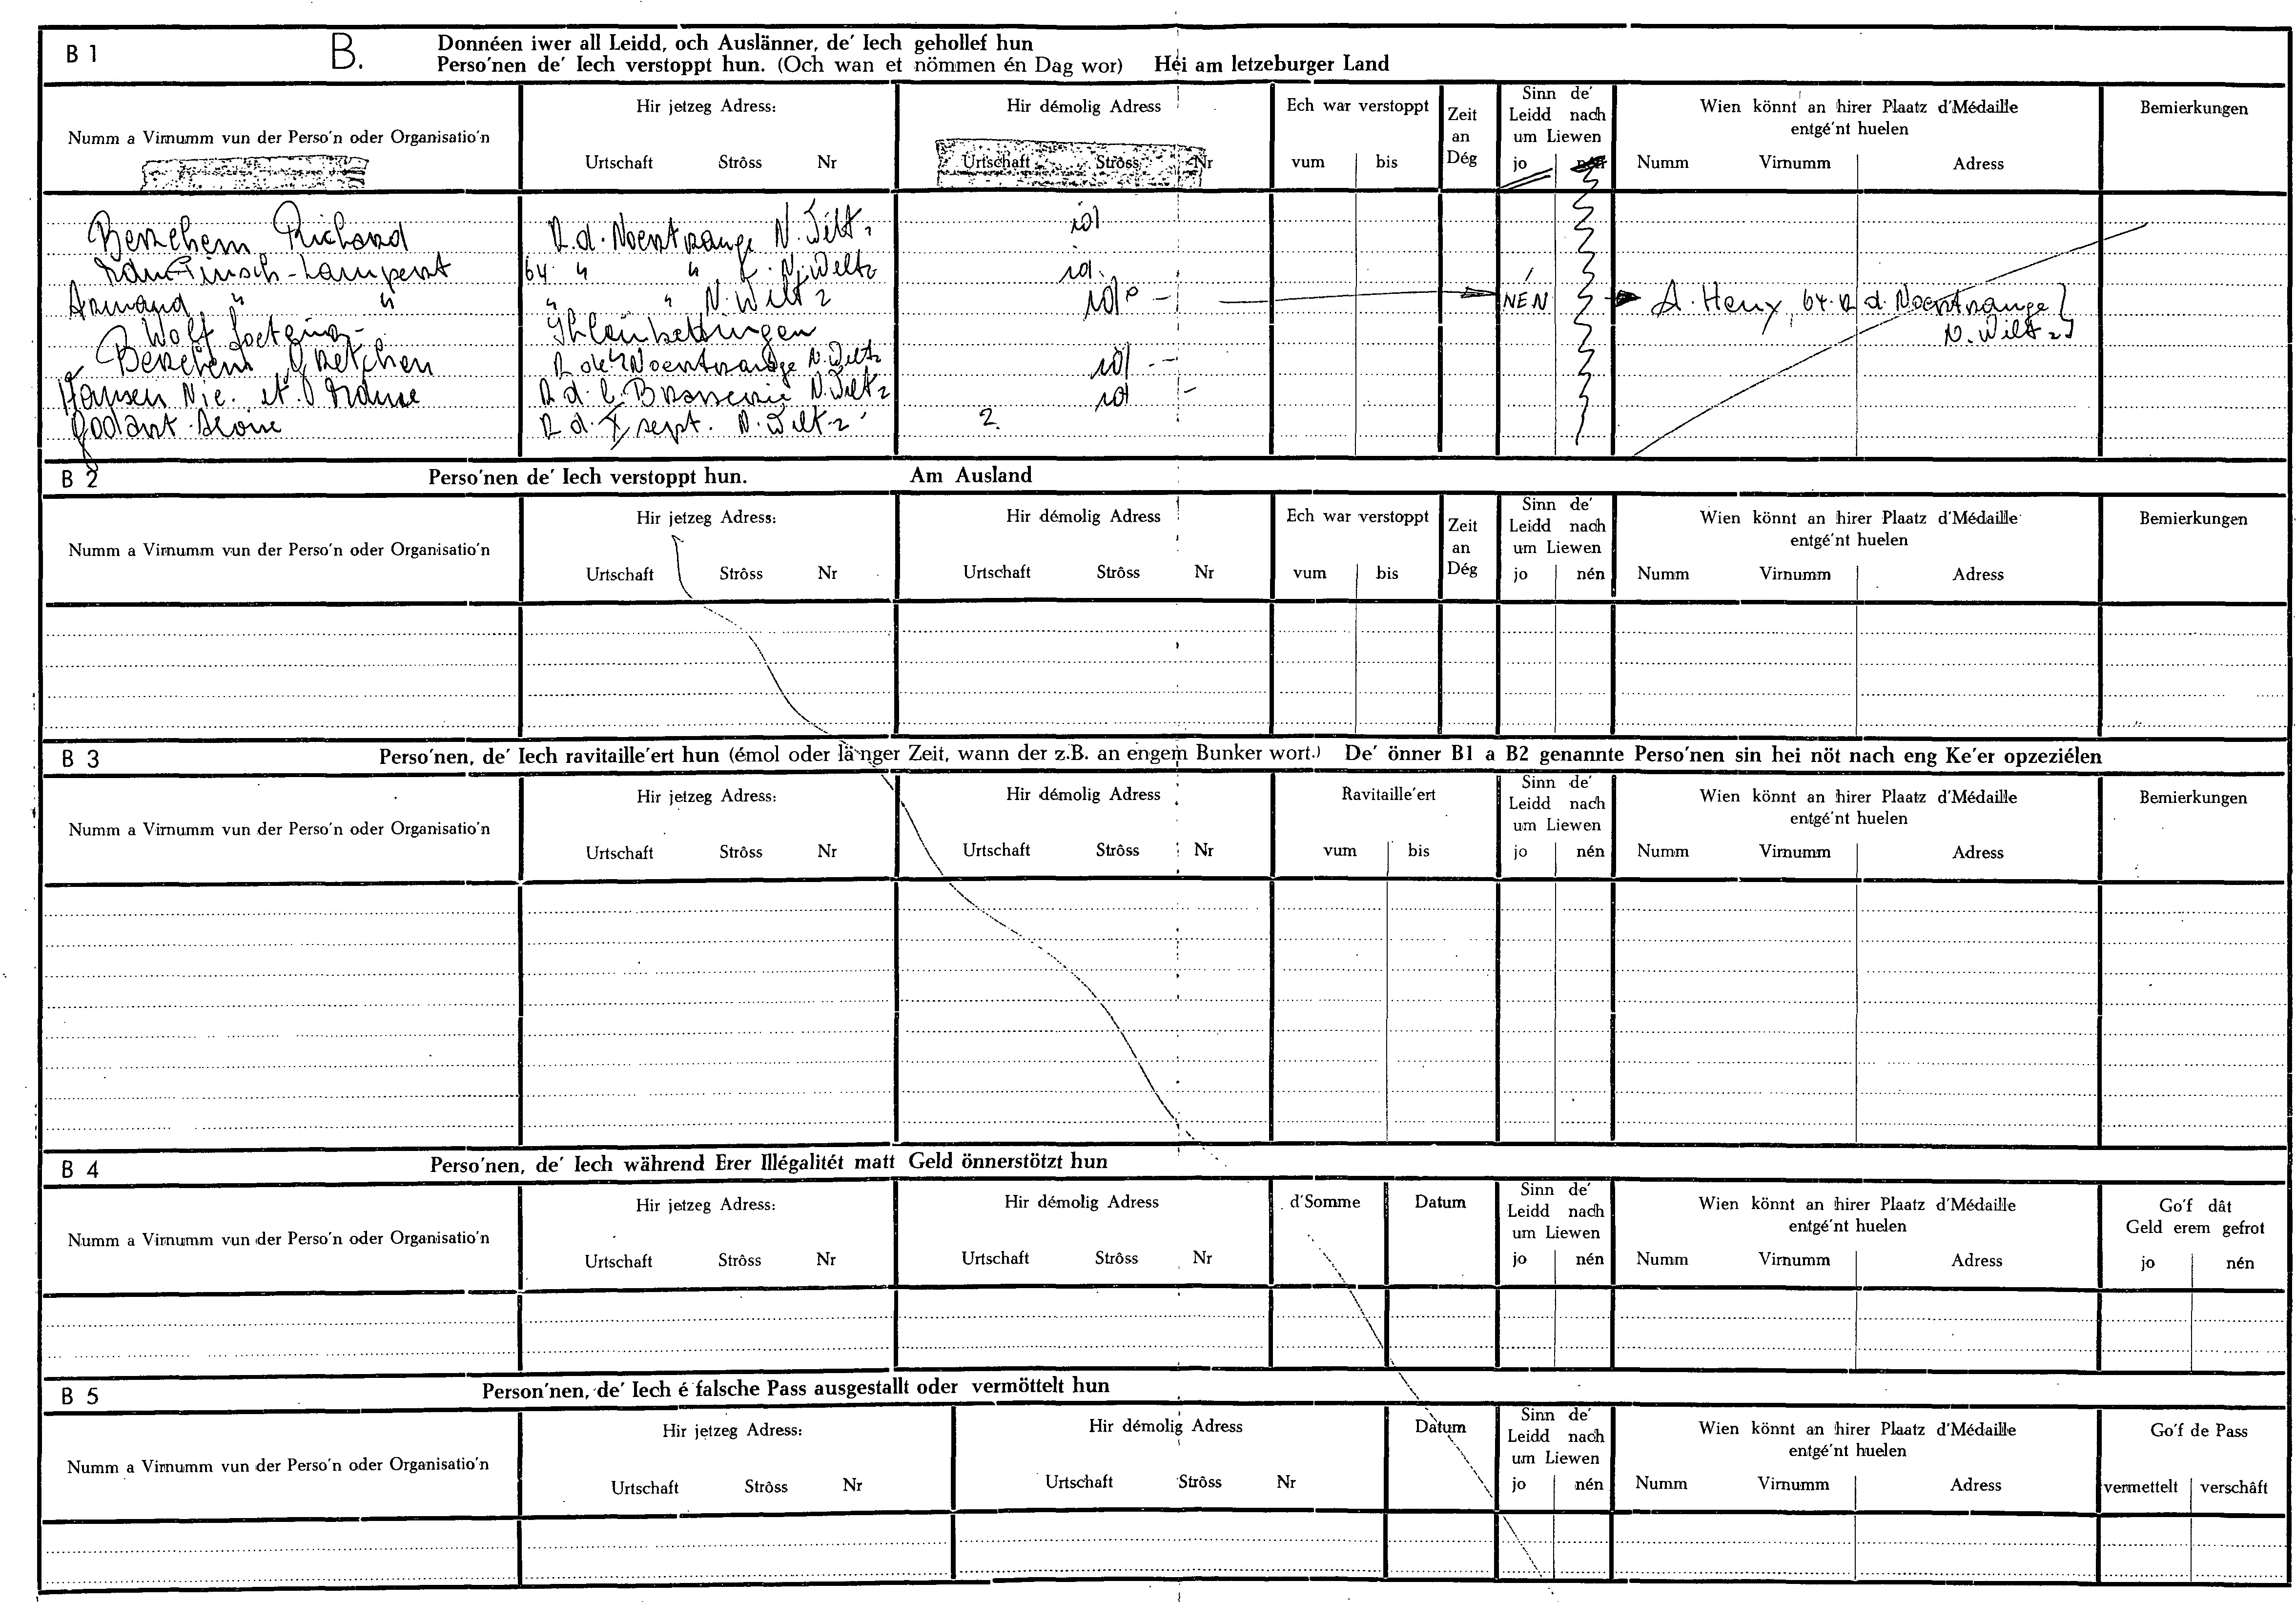 B 1 B. Donnéen iwer all Leidd, och Auslänner, de' Iech gehollef hun
Perso'nen de' Iech verstoppt hun. (Och wan et nömmen én Dag wor) Héi am letzeburger Land
Numm a Virnumm vun der Perso'n oder Organisatio'n
Hir jetzeg Adress:
Urtschaft Strôss Nr
Hir démolig Adress
Urtschaft Strôss Nr
Ech war verstoppt
vum bis
Zeit
an
Dég
Sinn de'
Leidd nach
um Liewen
jo
Wien könnt an hirer Plaatz d'Médaille
entgé'nt huelen
Numm Virnumm Adress
Bemierkungen
Richard R. d. Noertrange N. Wiltz id
64 " " N. Wiltz id.
Armand " " " " N. Wiltz id NÉN A. 64. R d. Noertrange
N. Wiltz
Wolf
Gretchen R de Noertrange N. Wiltz id -
Hansen Nic. et R. d. l. Brasserie N. Wiltz id -
R d. X sept. N. Wiltz ?
B 2 Perso'nen de' Iech verstoppt hun. Am Ausland
Numm a Virnumm vun der Perso'n oder Organisatio'n
Hir jetzeg Adress:
Urtschaft Strôss Nr
Hir démolig Adress
Urtschaft Strôss Nr
Ech war verstoppt
vum bis
Zeit
an
Dég
Sinn de'
Leidd nach
um Liewen
jo nén
Wien könnt an hirer Plaatz d'Médaille
entgé'nt huelen
Numm Virnumm Adress
Bemierkungen
B 3 Perso'nen, de' Iech ravitaille'ert hun (émol oder länger Zeit, wann der z.B. an engem Bunker wort.) De' önner B1 a B2 genannte Perso'nen sin hei nöt nach eng Ke'er opzeziélen
Numm a Virnumm vun der Perso'n oder Organisatio'n
Hir jetzeg Adress:
Urtschaft Strôss Nr
Hir démolig Adress
Urtschaft Strôss Nr
Ravitaille'ert
vum bis
Sinn de'
Leidd nach
um Liewen
jo nén
Wien könnt an hirer Plaatz d'Médaille
entgé'nt huelen
Numm Virnumm Adress
Bemierkungen
B 4 Perso'nen, de' Iech während Erer Illégalitét matt Geld önnerstötzt hun
Numm a Virnumm vun der Perso'n oder Organisatio'n
Hir jetzeg Adress:
Urtschaft Strôss Nr
Hir démolig Adress
Urtschaft Strôss Nr
d'Somme
Datum
Sinn de'
Leidd nach
um Liewen
jo nén
Wien könnt an hirer Plaatz d'Médaille
entgé'nt huelen
Numm Virnumm Adress
Go'f dât
Geld erem gefrot
jo nén
B 5 Person'nen, de' Iech é falsche Pass ausgestallt oder vermöttelt hun
Numm a Virnumm vun der Perso'n oder Organisatio'n
Hir jetzeg Adress:
Urtschaft Strôss Nr
Hir démolig Adress
Urtschaft Strôss Nr
Datum
Sinn de'
Leidd nach
um Liewen
jo nén
Wien könnt an hirer Plaatz d'Médaille
entgé'nt huelen
Numm Virnumm Adress
Go'f de Pass
vermettelt verschâft